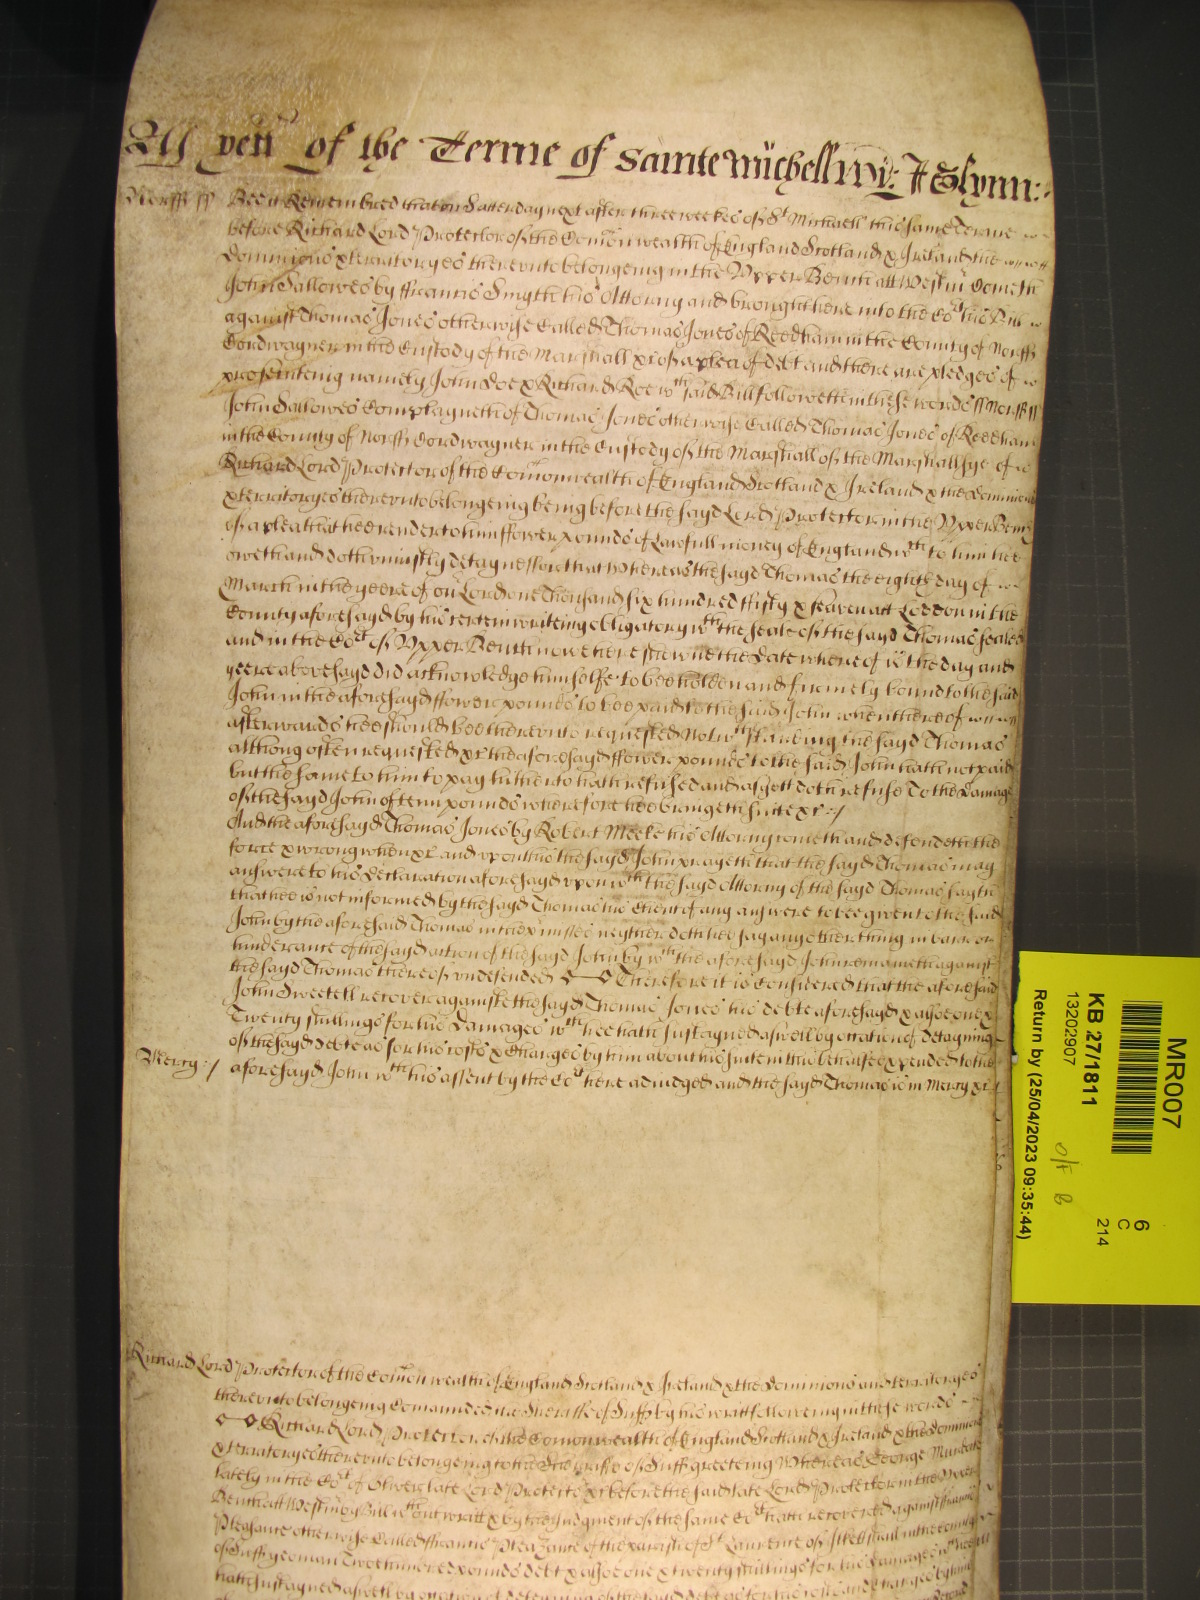 As yett of the Terme of Sainte Michell 1658 Glynn
Norff ss Bee it Remembred that on Satterday next after three weekes of St Michaell this same Terme
before Richard Lord Protector of the Comonwealth of England Scotland & Ireland & the
Dominions & territoryes therevnto belongeing in the Vpper Bench att Westmr Cometh
John Sallowes by ffrancis Smyth his Attorny and brought here into the Cort his Bill
against Thomas Jones otherwise Called Thomas Jones of Reedham in the County of Norff
Cordwayner in the Custody of the Marshall &c of a plea of debt and there are pledges of
prosecuteing namely John Doe & Richard Roe wch said Bill followeth in these words ss Norff ss
John Sallowes Complayneth of Thomas Jones otherwise Called Thomas Jones of Reedham
in the County of Norff Cordwayner in the Custody of the Marshall of the Marshallsye of
Richard Lord Protector of the Comonwealth of England Scotland & Ireland & the Dominions
& territoryes therevnto belongeing being before the sayd Lord Protector in the Vpper Bench
of a plea that hee render to him ffower pounds of Lawfull money of England wch to him hee
oweth and doth vniustly detayne ffor that Whereas the sayd Thomas the eighth day of
March in the yeere of our Lord one Thousand six hundred ffifty & seaven att Loddon in the
County aforesayd by his certein writeing obligatory wth the seale of the sayd Thomas sealed
and in the Cort of Vpper Bench now here shewne the date whereof is the day and
yeere abovesayd did acknowledge himselfe to bee holden and firmely bound to the said
John in the aforesayd ffower pounds to bee paid to the said John when thereof
afterwards hee should bee therevnto requested Notwthstanding the sayd Thomas
although often requested &c the aforesayd ffower pounds to the said John hath not paid
but the same to him to pay hitherto hath refused and as yett doth refuse To the damage
of the sayd John of tenn pounds wherefore hee bringeth suite &c :/
And the aforesayd Thomas Jones by Robert Meeke his Attorny cometh and defendeth the
force & wrong when &c and vpon this the sayd John prayeth that the sayd Thomas may
answere to his declaration aforesayd vpon wch the sayd Attorny of the sayd Thomas sayth
that hee is not informed by the sayd Thomas his Client of any answere to bee given to the said
John by the aforesaid Thomas in the p'misses neyther doth hee say any other thing in barr or
hinderance of the sayd action of the sayd John by wch the aforesayd John remaineth against
the sayd Thomas thereof vndefended Therefore it is Considered that the aforesaid
John Sweetell recover against the sayd Thomas Jones his debt aforesayd & alsoe one &
Twenty shillings for his damages wch hee hath sustayned aswell by occasion of detayning
of the sayd debt as for his costs & Charges by him about his suite in this behalfe expended to the
Mercy :/ aforesayd John wth his assent by the Cort here adiudged and the sayd Thomas is in Mercy &c
Richard Lord Protector of the Comonwealth of England Scotland & Ireland & the Dominions and territoryes
therevnto belongeing Comaunded the Sheriffe of Suff by his writt followeing in these words
Richard Lord Protector of the Comonwealth of England Scotland & Ireland & the Dominions
& territoryes therevnto belongeing to the Sheriffe of Suff greeteing Whereas George
lately in the Cort of Oliver late Lord Protector &c before the said late Lord Protector in the Vpper
Bench att Westmr by Bill wthout writt & by the Judgment of the same Cort hath recovered against ffrancis
Pleasance otherwise Called ffrancis Pleazance of the parish of St Laurence of in the County
of Suff yeoman Two hundred pounds debt & alsoe one & twenty shillings for his damages wch hee
hath sustayned aswell by occasion of deteyning of the sayd debt as for his costs and Charges by him
MR007
KB 27/1811
13202907
Return by (25/04/2023 09:35:44)
6
C
214